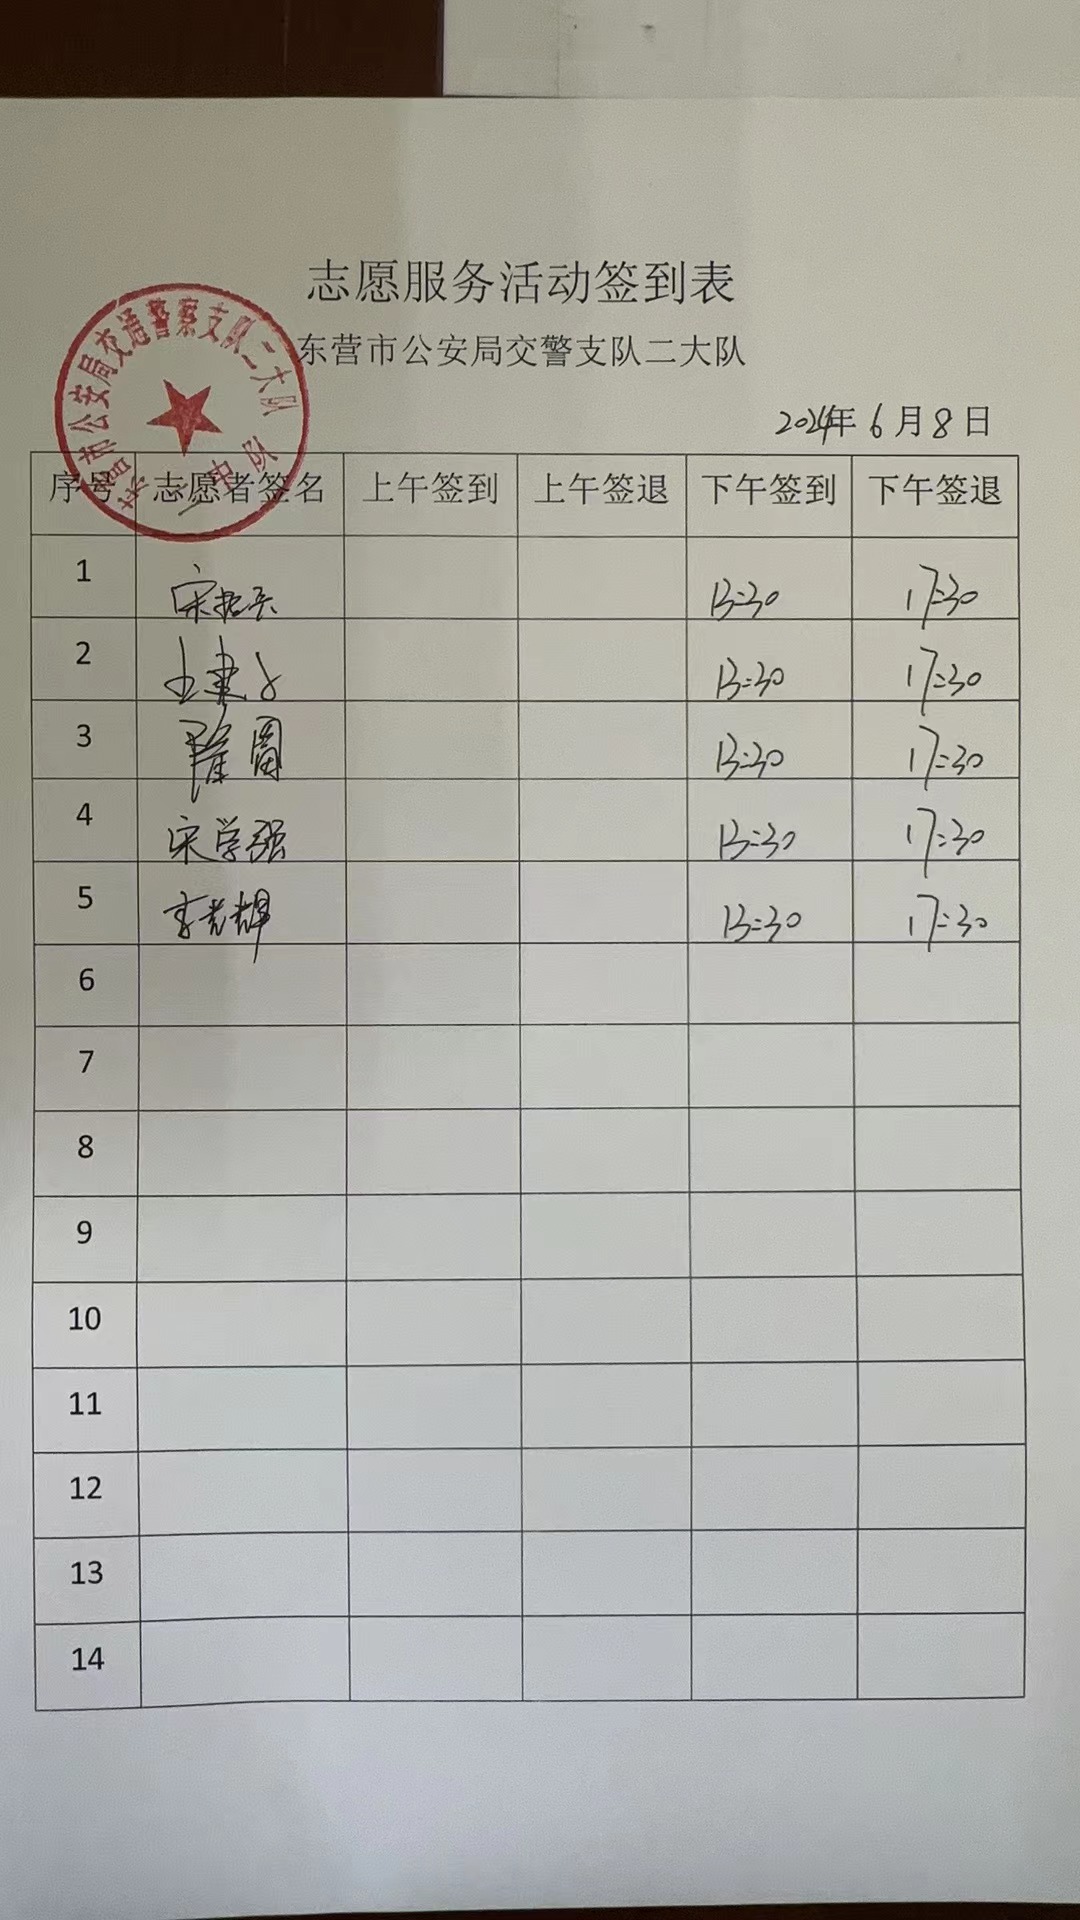 志愿服务活动签到表
东营市公安局交警支队二大队
东营市公安局交通警察支队二大队
2024年 6月8日
序号 志愿者签名 上午签到 上午签退 下午签到 下午签退
1 宋 13:30 17:30
2 王建 13:30 17:30
3 13:30 17:30
4 宋学强 13:30 17:30
5 李光辉 13:30 17:30
6
7
8
9
10
11
12
13
14